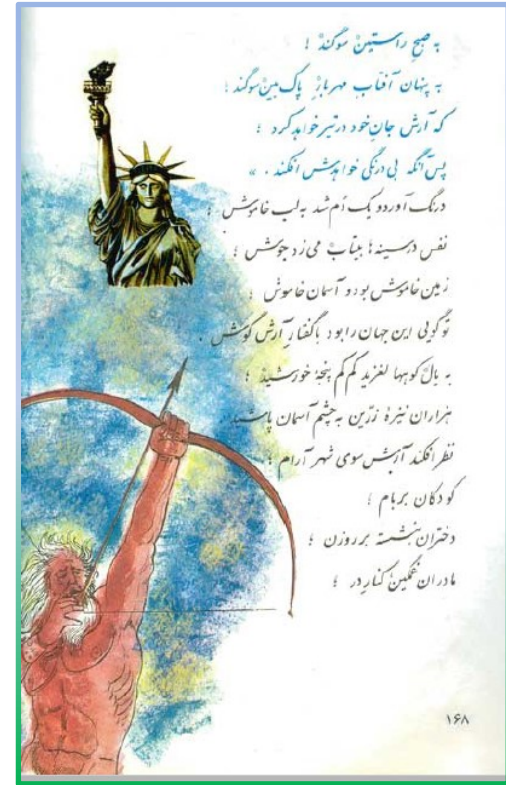 به صبحِ راستینْ سوگندْ !
به پنهان آفتابِ مهربارِ پاک‌بینْ سوگند ؛
که آرش جانِ خود در تیر خواهد کرد ؛
پس آنگه بی درنگی خواهدش افکند . »
درنگ آورد و یک دَم شد به لب خاموش ؛
نفس در سینه‌ها بیتابْ می‌زد جوش ؛
زمین خاموش بود و آسمان خاموش ؛
تو گویی این جهان را بود با گفتارِ آرش گوش .
به بالِ کوهها لغزید کم کم پنجهٔ خورشید ؛
هزاران نیزهٔ زرّین به چشم آسمان پاشید
نظر افکند آرش سوی شهر آرام ؛
کودکان بر بام ؛
دختران بنشسته بر روزن ؛
مادران غمگین کنارِ در ؛
۱۶۸